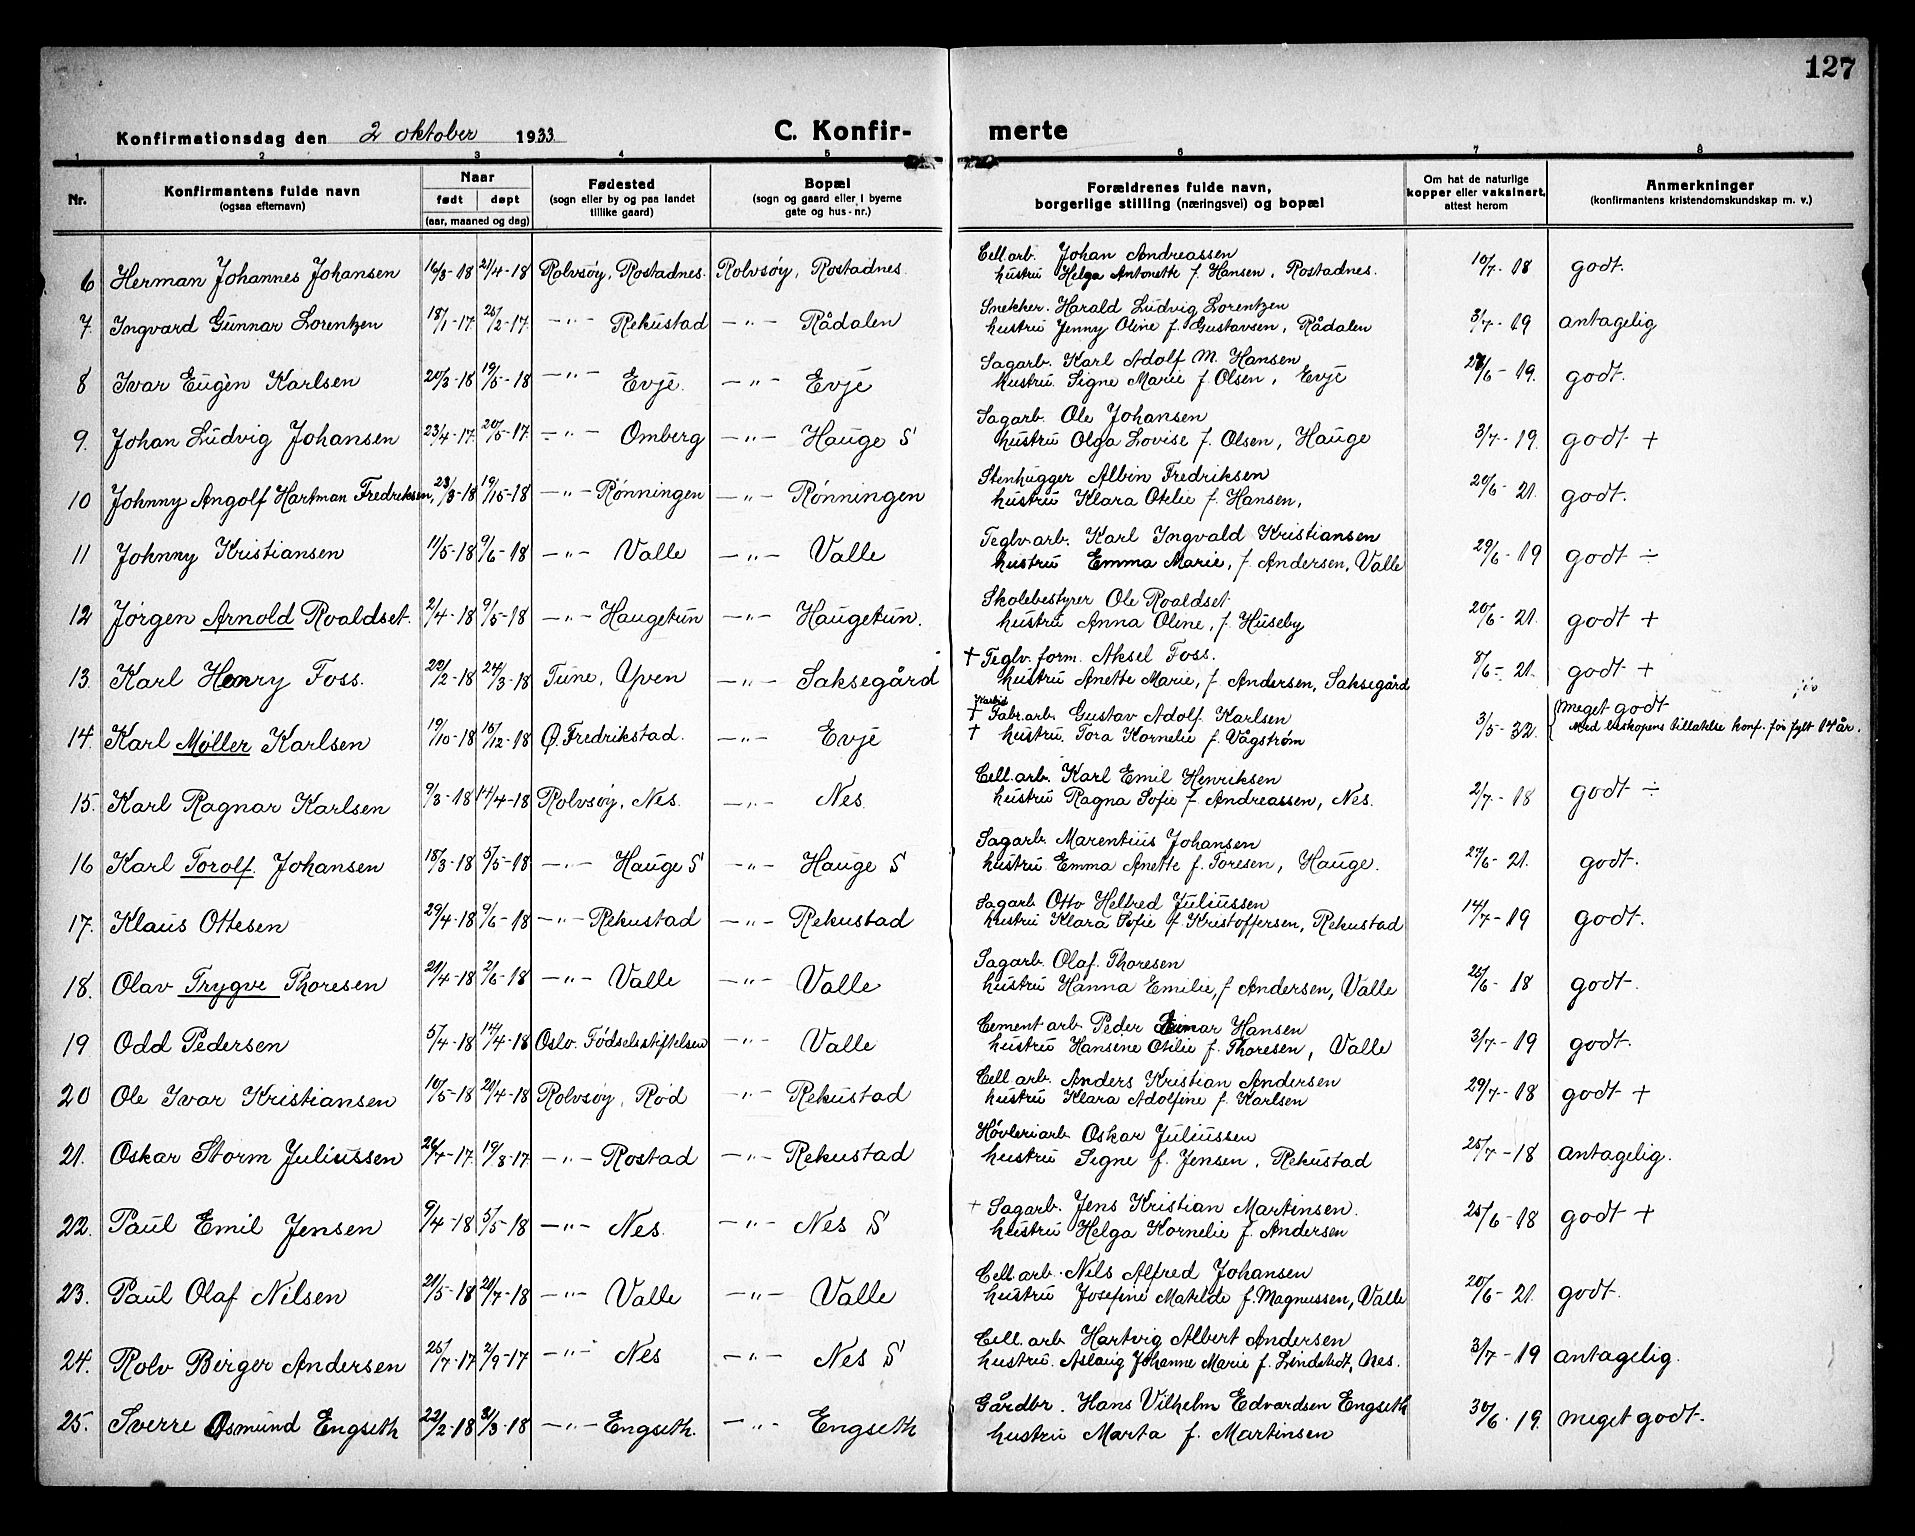 127
Konfirmationsdag den 2 oktober 1933 C. Konfir- merte
1 2 3 4 5 6 7 8
Nr. Konfirmantens fulde navn (ogsaa efternavn) Naar født døpt (aar, maaned og dag) Fødested (sogn eller by og paa landet tillike gaard) Bopæl (sogn og gaard eller i byerne gate og hus-nr.) Forældrenes fulde navn, borgerlige stilling (næringsvei) og bopæl Om hat de naturlige kopper eller vaksinert, attest herom Anmerkninger (konfirmantens kristendomskundskap m. v.)
6 Herman Johannes Johansen 16/3-18 21/4-18 Rolvsøy, Rostadnes. Rolvsøy, Rostadnes. Cell.arb. Johan Andreassen
hustru Helga Antonette f. Hansen, Rostadnes. 10/7-18 godt.
7. Ingvard Gunnar Lorentzen 18/1-17 25/2-17. —"— Rekustad —"— Rådalen Snekker. Harald Ludvig Lorentzen
hustru Jenny Oline f. Gustavsen, Rådalen 3/7-19 antagelig
8 Ivar Eugèn Karlsen 20/3-18 19/5-18 —"— Evje. —"— Evje Sagarb. Karl Adolf M. Hansen
hustru Signe Marie f. Olsen, Evje /6-19. godt.
9. Johan Ludvig Johansen 23/4-17. 20/5-17. —"— Omberg —"— Hauge S Sagarb. Ole Johansen
hustru Olga Lovise f. Olsen, Hauge 3/7-19. godt +
10 Johnny Angolf Hartman Fredriksen, 23/3-18 19/5-18 —"— Rønningen —"— Rønningen Stenhugger Albin Fredriksen
hustru Klara Otelie f. Hansen, 20/6-21. godt.
11 Johnny Kristiansen 11/5-18 9/6-18 —"— Valle —"— Valle Teglv.arb. Karl Ingvald Kristiansen
hustru Emma Marie, f. Andersen, Valle 29/6-19 godt ÷
12 Jørgen Arnold Roaldset. 2/4-18 9/5-18 —"— Haugetun —"— Haugetun. Skolebestyrer Ole Roaldset
hustru Anna Oline, f. Huseby 20/6-21. godt +
13. Karl Henry Foss. 22/2-18 24/3-18 Tune, Yven —"— Saksegård + Teglv. form. Aksel Foss.
hustru Anette Marie, f. Andersen, Saksegård 8/6-21. godt +
14. Karl Møller Karlsen 19/10-18 15/12-18 Ø. Fredrikstad. —"— Evje + Fabr.arb. Gustav Adolf Karlsen
+ hustru Tora Kornelie f. Vågstrøm 3/5-32. meget godt
Med biskopens tillatelse konf. før fylt 14 år.
15. Karl Ragnar Karlsen 9/3-18 14/4-18 Rolvsøy, Nes. —"— Nes. Cell.arb. Karl Emil Henriksen
hustru Ragna Sofie f. Andreassen, Nes. 2/7-18 godt ÷
16 Karl Torolf. Johansen 18/3-18 5/5-18 —"— Hauge S —"— Hauge S Sagarb. Marentius Johansen
hustru Emma Anette f. Toresen, Hauge. 27/6-21. godt.
17. Klaus Ottesen 29/4-18 9/6-18 —"— Rekustad —"— Rekustad Sagarb Otto Helfred Juliussen
hustru Klara Sofie f Kristoffersen, Rekustad 14/7-19 godt.
18. Olav Trygve Thoresen 21/4-18 2/6-18 —"— Valle —"— Valle Sagarb. Olaf. Thoresen
hustru Hanna Emilie, f Andersen, Valle 25/6-18 godt.
19 Odd Pedersen 5/4-18 14/4-18 Oslo. Fødselsstiftelsen —"— Valle Cement arb. Peder Hansen
hustru Hansine Otilie f. Thoresen, Valle 3/7-19 godt.
20 Ole Ivar Kristiansen 10/5-18 20/4-18 Rolvsøy, Rød —"— Rekustad Cell arb. Anders Kristian Andersen
hustru Klara Adolfine f. Karlsen 29/7-18 godt +
21. Oskar Storm Juliussen 26/7-17. 19/8-17 —"— Rostad —"— Rekustad Høvleriarb Oskar Juliussen
hustru Signe f. Jensen, Rekustad 25/7-18 antagelig.
22. Paul Emil Jensen 9/4-18 5/5-18 —"— Nes. —"— Nes S + Sagarb. Jens Kristian Martinsen.
hustru Helga Kornelie f. Andersen 25/6-18 godt +
23. Paul Olaf Nilsen 21/5-18 21/7-18 —"— Valle —"— Valle Cell arb. Nils Alfred Johansen
hustru Josefine Matilde f. Magnussen, Valle 20/6-21. godt.
24. Rolv Birger Andersen 25/7-17 2/9-17 —"— Nes —"— Nes S Cell. arb Hartvig Albert Andersen
hustru. Aslaug Johanne Marie f. Lindstedt, Nes. 3/7-19 antagelig.
25. Sverre Osmund Engseth 22/2-18 31/3-18 —"— Engseth. —"— Engseth Gårdbr. Hans Vilhelm Edvardsen Engseth
hustru Marta f. Martinsen 30/6-19. meget godt.